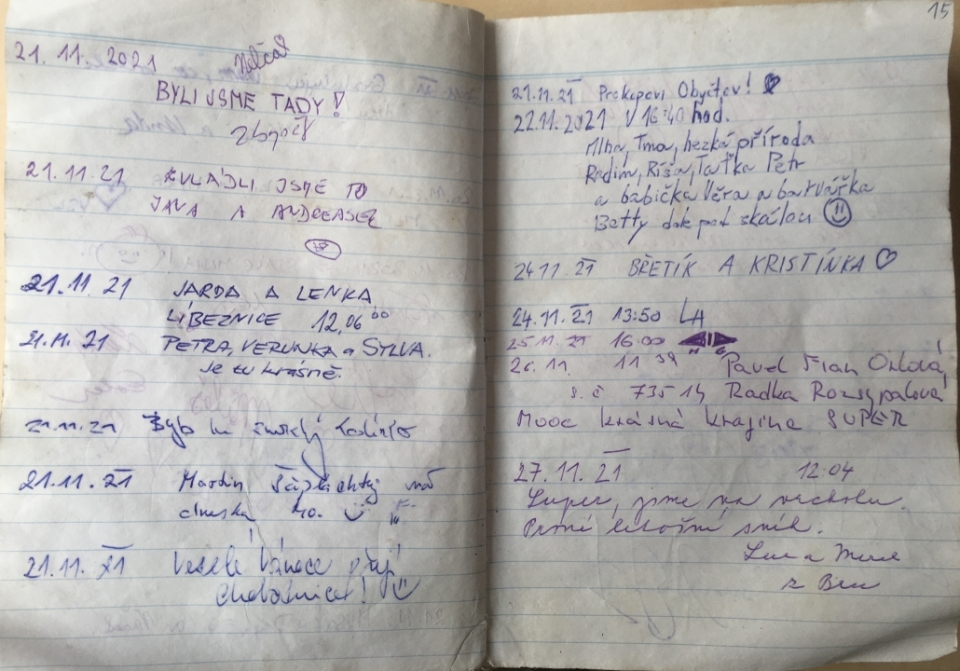 21. 11. 2021
BYLI JSME TADY!
21.11.21 ZVLÁDLI JSME TO
JANA A ANDREASEK
21.11.21 JARDA A LENKA
LÍBEZNICE 12,06
21.11.21 PETRA, VERUNKA a SYLVA.
Je tu krásně.
21.11.21
21.11.21 Martin má
dneska 40.
21.11.21 Veselé Vánoce přejí
Chobotnice!
15
21.11.21 Prokopovi Obyčtov!
22.11.2021 V 16:40 hod.
Mlha, Tma, hezká příroda
Radim, Ríša, Taťka Petr
a babička Věra a barvářka
Betty dole pod skálou
24.11.21 BŘETÍK A KRISTÍNKA
24.11.21 13:50 LH
25.11.21 16:00
26.11. 11 39 Pavel Fian Orlová
s.č 735 14 Radka Rozsypalová
Mooc krásná krajina SUPER
27.11.21 12:04
Super, jsme na vrcholu.
První letošní sníh.